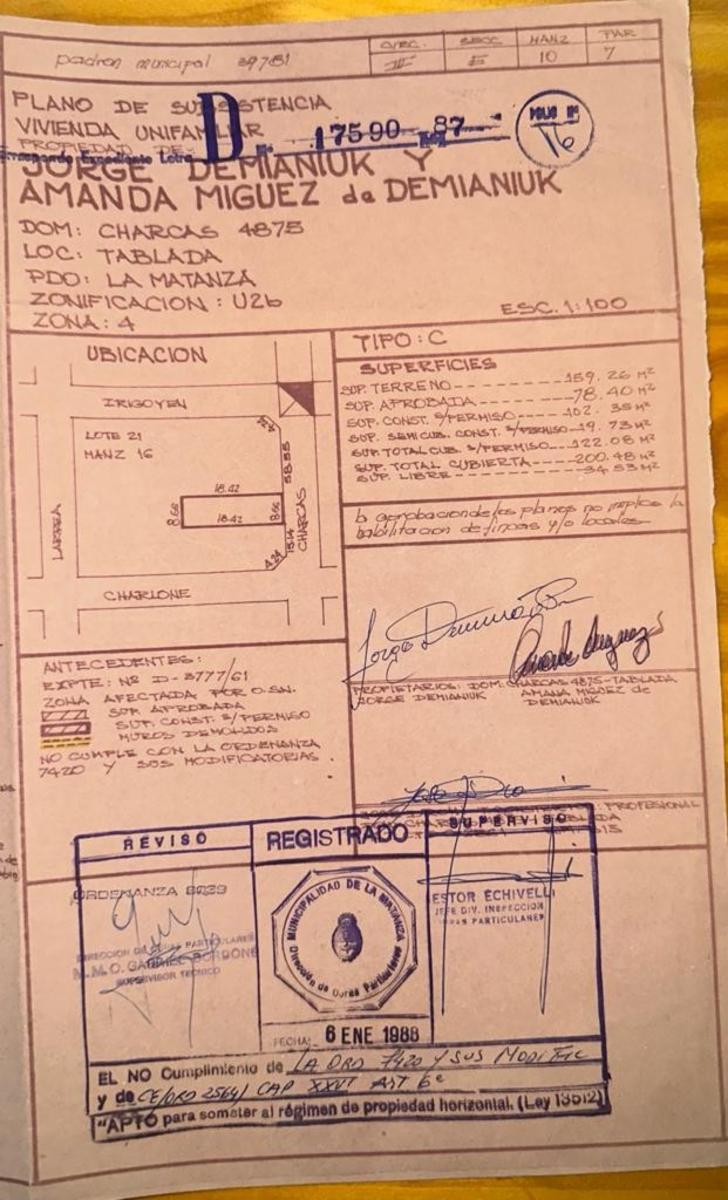 padron municipal 39781
CIRC. SECC. MANZ PAR
III E 10 7
PLANO DE SUBSISTENCIA
VIVIENDA UNIFAMILIAR
PROPIEDAD DE:
Corresponde Expediente Letra D Nº 17590-87
FOLIO Nº
16
JORGE DEMIANIUK Y
AMANDA MIGUEZ de DEMIANIUK
DOM: CHARCAS 4875
LOC: TABLADA
PDO: LA MATANZA
ZONIFICACION: U2b
ZONA: 4
ESC. 1:100
UBICACION
IRIGOYEN
LOTE 21
MANZ 16
LARREA
CHARCAS
58.55
18.42
8.66
18.42
8.66
15.14
4.24
CHARLONE
TIPO: C
SUPERFICIES
SUP. TERRENO 159.26 M²
SUP. APROBADA 78.40 M²
SUP. CONST. S/PERMISO 102.35 M²
SUP. SEMICUB. CONST. S/PERMISO 19.73 M²
SUP. TOTAL CUB. S/PERMISO 122.08 M²
SUP. TOTAL CUBIERTA 200.48 M²
SUP. LIBRE 34.53 M²
la aprobacion de los planos no implica la
habilitacion de fincas y/o locales
ANTECEDENTES:
EXPTE: Nº D-3777/61
ZONA AFECTADA POR O.SN.
SUP. APROBADA
SUP. CONST. S/PERMISO
MUROS DEMOLIDOS
NO CUMPLE CON LA ORDENANZA
7420 Y SUS MODIFICATORIAS.
PROPIETARIOS: DOM: CHARCAS 4875-TABLADA
JORGE DEMIANIUK AMANA MIGUEZ de
DEMIANIUK
PROFESIONAL
REVISO
REGISTRADO
SUPERVISO
ORDENANZA
DIRECCION DE OBRAS PARTICULARES
M.M.O. GABRIEL BORDONE
SUPERVISOR TECNICO
MUNICIPALIDAD DE LA MATANZA
Dirección de Obras Particulares
ESTOR ECHIVELLI
JEFE DIV. INSPECCION
OBRAS PARTICULARES
FECHA: 6 ENE 1988
EL NO Cumplimiento de LA ORD 7420 Y SUS MODIFIC
y de CE/ORD 2564/ CAP XXVI ART 6º
"APTO para someter al régimen de propiedad horizontal. (Ley 13512)